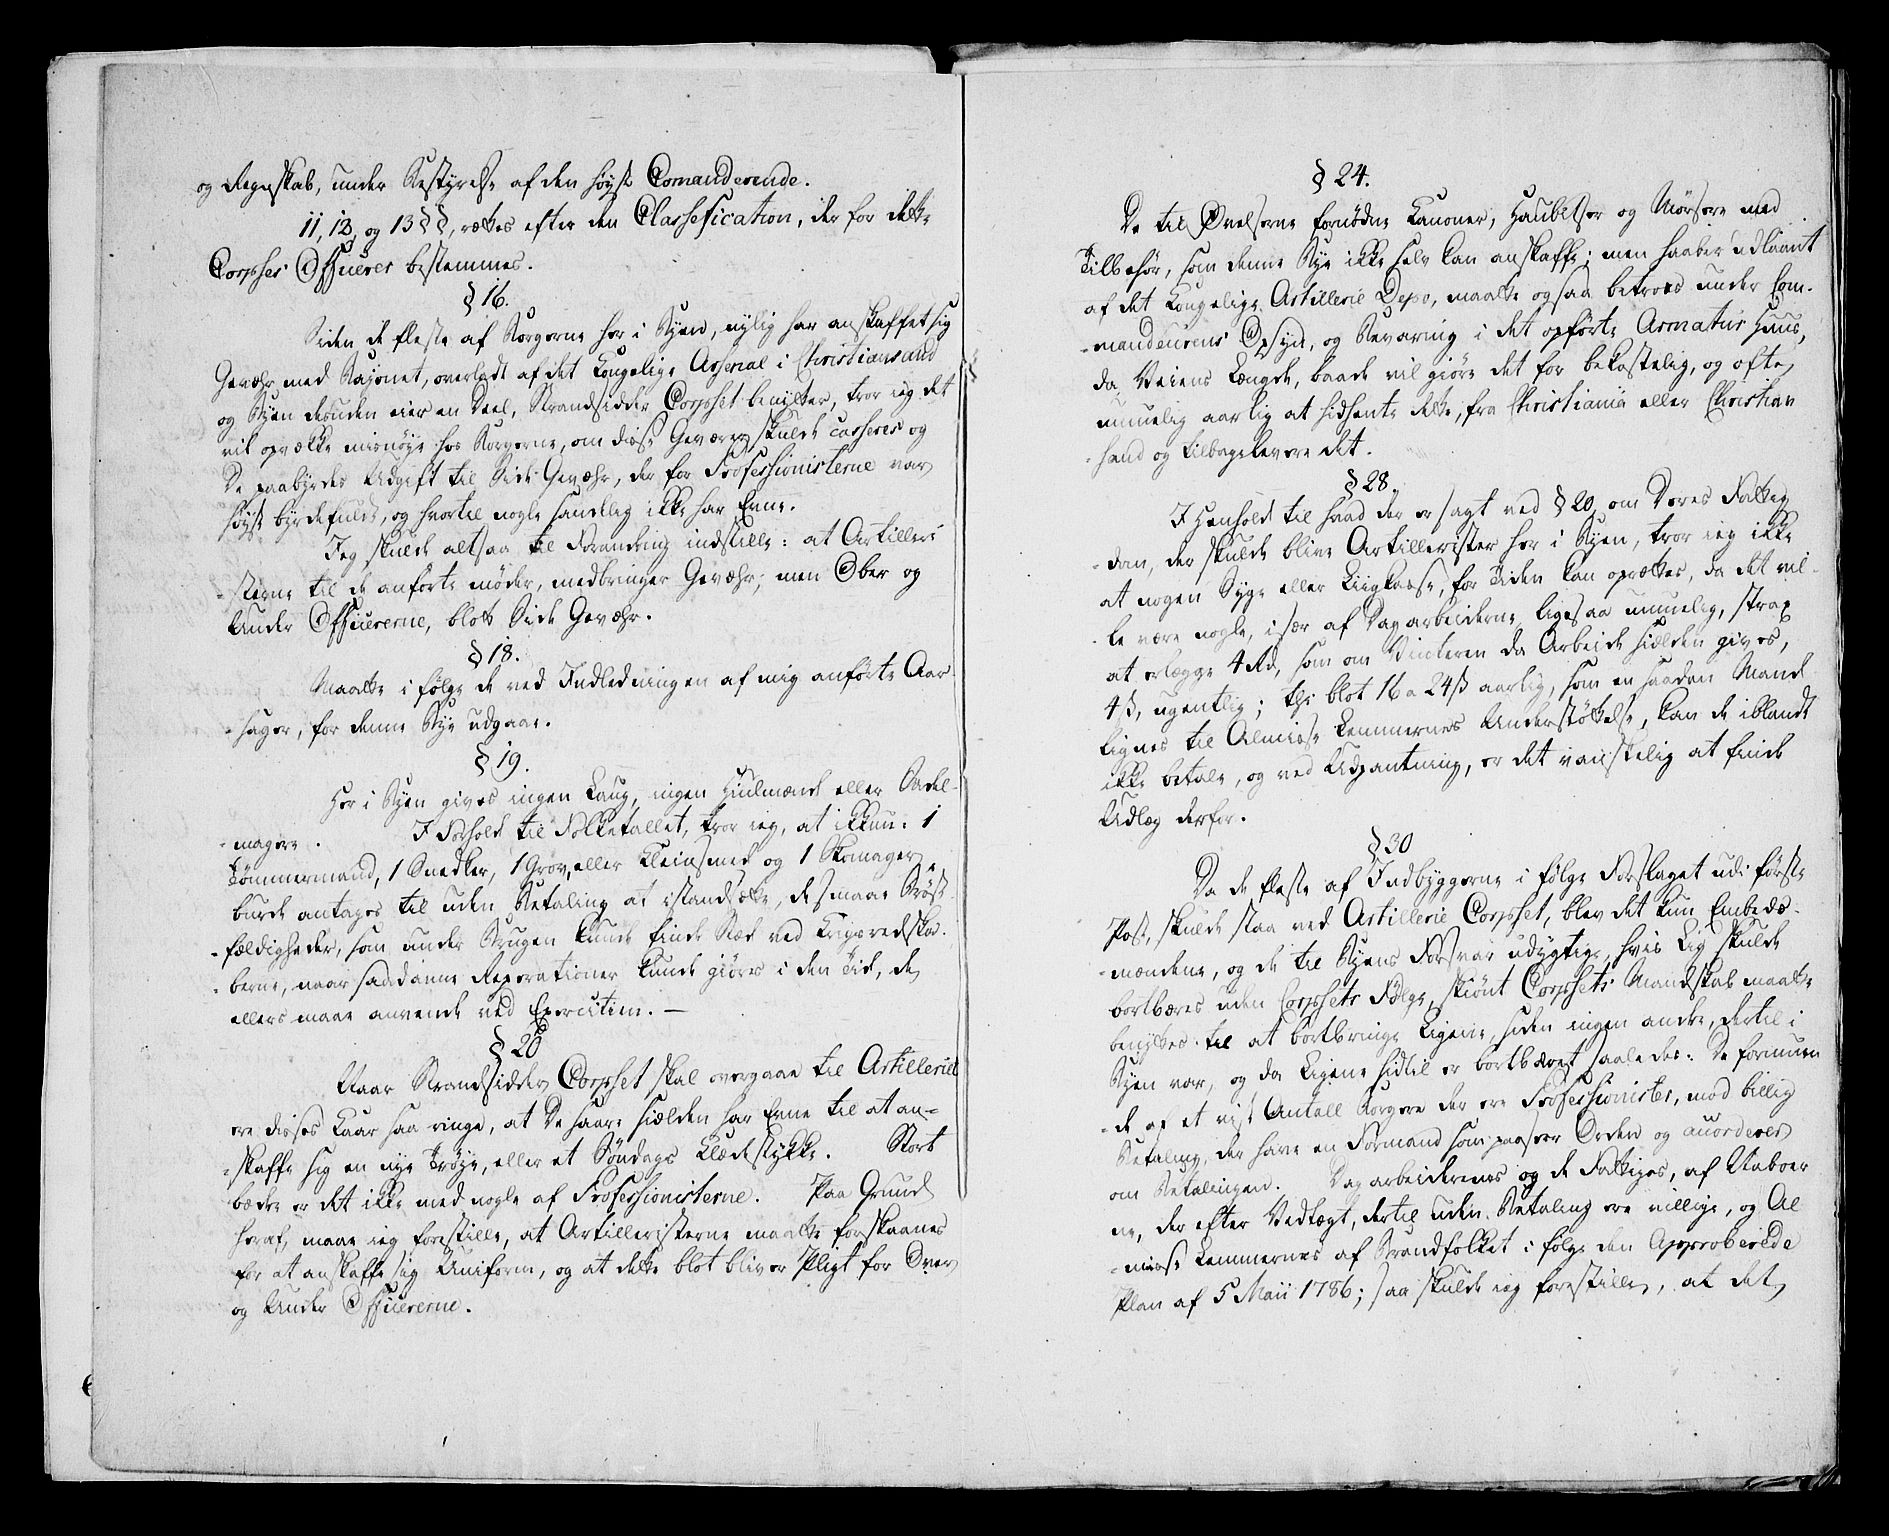 og Regnskab, under Bestyrelse af den høyst Comanderende.
11, 12, og 13 §§, rettes efter den Classefication, der for dette
Corpses Officerer bestemmes.
§ 16.
Siden de fleste af Borgerne her i Byen, nylig har anskaffet sig
Gevæhr med Bajonet, overladt af det Kongelige Arsenal i Christiansand
og Byen desuden eier en Deel, Strandsidder Corpset benytter, troer ieg det
vil opvække misnøye hos Borgerne, om disse Geværer skulde casseres og
De paabyrdes Udgift til Side Gevæhr, der for Professionisterne var
høyst byrdefuldt, og hvortil nogle sandelig ikke har Evne.
Jeg skulde altsaa til Forandring indstille: at Artilleri
-sterne til de anførte møder, medbringer Gevæhr; men Ober og
Under Officererne, blot Side Gevæhr.
§ 18.
Maatte i følge de ved Indledningen af mig anførte Aar
-sager, for denne Bye udgaae.
§ 19.
Her i Byen gives ingen Laug, ingen Hiulmænd eller Sadel-
-magere. I Forhold til Folketallet, troer ieg, at ikkun: 1
Tømmermand, 1 Snedker, 1 Grov, eller Kleinsmed og 1 Skomager
burde antages til uden Betaling at istandsætte, de smaae Brøst-
-fældigheder, som under Brugen kunde finde Sted ved Krigsredska-
-berne, naar saadanne Reparationer kunde giøres i den Tid, de
ellers maae anvende ved Exercitien. —
§ 20
Naar Strandsidder Corpset skal overgaae til Artilleriet
ere disses Kaar saa ringe, at De faare sielden har Evne til at an-
-skaffe sig en nye Trøye, eller et Søndags Klædestykke. Stort
bedre er det ikke med nogle af Professionisterne. Paa Grund
heraf, maae ieg forestille, at Artilleristerne maatte forskaanes
for at anskaffe sig Uniform, og at dette blot bliver Pligt for Over
og Under Officererne.
§ 24.
De til Øvelserne fornødne Kanoner, Haubitser og Mørsere med
Tilbehør, som denne Bye ikke selv kan anskaffe; men haaber udlaant
af det Kongelige Artillerie Depo, maatte ogsaa betroes under Com-
-mandeurens Opsyn, og Bevaring i det opførte Armatur Huus,
da Veiens Længde, baade vil giøre det for bekostelig, og ofte
umuelig aarlig at hidsente dette, fra Christiania eller Christian
-sand og tilbagelevere det.
§ 28
I Henhold til hvad der er sagt ved § 20, om Deres Fattig
-dom, der skulde blive Artillerister her i Byen, troer ieg ikke
at nogen Syge eller Liigkasse, for Tiden kan oprettes, da det vil-
-le være nogle, især af Dagarbeiderne, ligesaa umuelig, strax
at erlægge 4 Rd, som om Vinteren da Arbeide sielden gives,
4 ß, ugentlig; thi blot 16 a 24 ß aarlig, som en saadan Mand
lignes til Almisse Lemmernes Understøttelse, kan de iblandt
ikke betale, og ved Udpantning, er det vanskelig at finde
Udlæg derfor.
§ 30
Da de fleste af Indbyggerne i følge Forslaget udi første
Post, skulde staa ved Artillerie Corpset, blev det kun Embeds-
-mændene, og de til Byens Forsvar udygtige, hvis Lig skulde
bortbæres uden Corpsets Følge, skiønt Corpsets Mandskab maatte
benyttes til at bortbringe Ligene, siden ingen andre, dertil i
Byen var, og da Ligene hidtil er bortbæret saaledes: De formuen
-de af et vist Antall Borgere der ere Professionister, mod billig
Betaling, der have en Formand som passer Orden og accorderer
om Betalingen. Dagarbeidernes og de Fattiges, af Naboer
ne, der efter Vedtægt, dertil uden Betaling ere villige, og Al
-misse Lemmernes af Strandfolket i følge den Approberede
Plan af 5 Maii 1786; saa skulde ieg forestille, at det